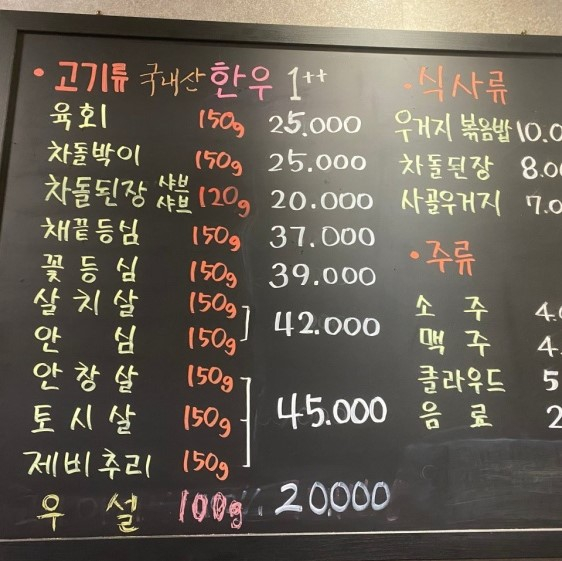 • 고기류 국내산 한우 1++
육회 150g 25.000
차돌박이 150g 25.000
차돌된장 샤브샤브 120g 20.000
채끝등심 150g 37.000
꽃등심 150g 39.000
살치살 150g
안심 150g 42.000
안창살 150g
토시살 150g 45.000
제비추리 150g
우설 100g 20000
• 식사류
우거지볶음밥 10.0
차돌된장 8.0
사골우거지 7.0
• 주류
소주 4.
맥주 4.
클라우드 5
음료 2